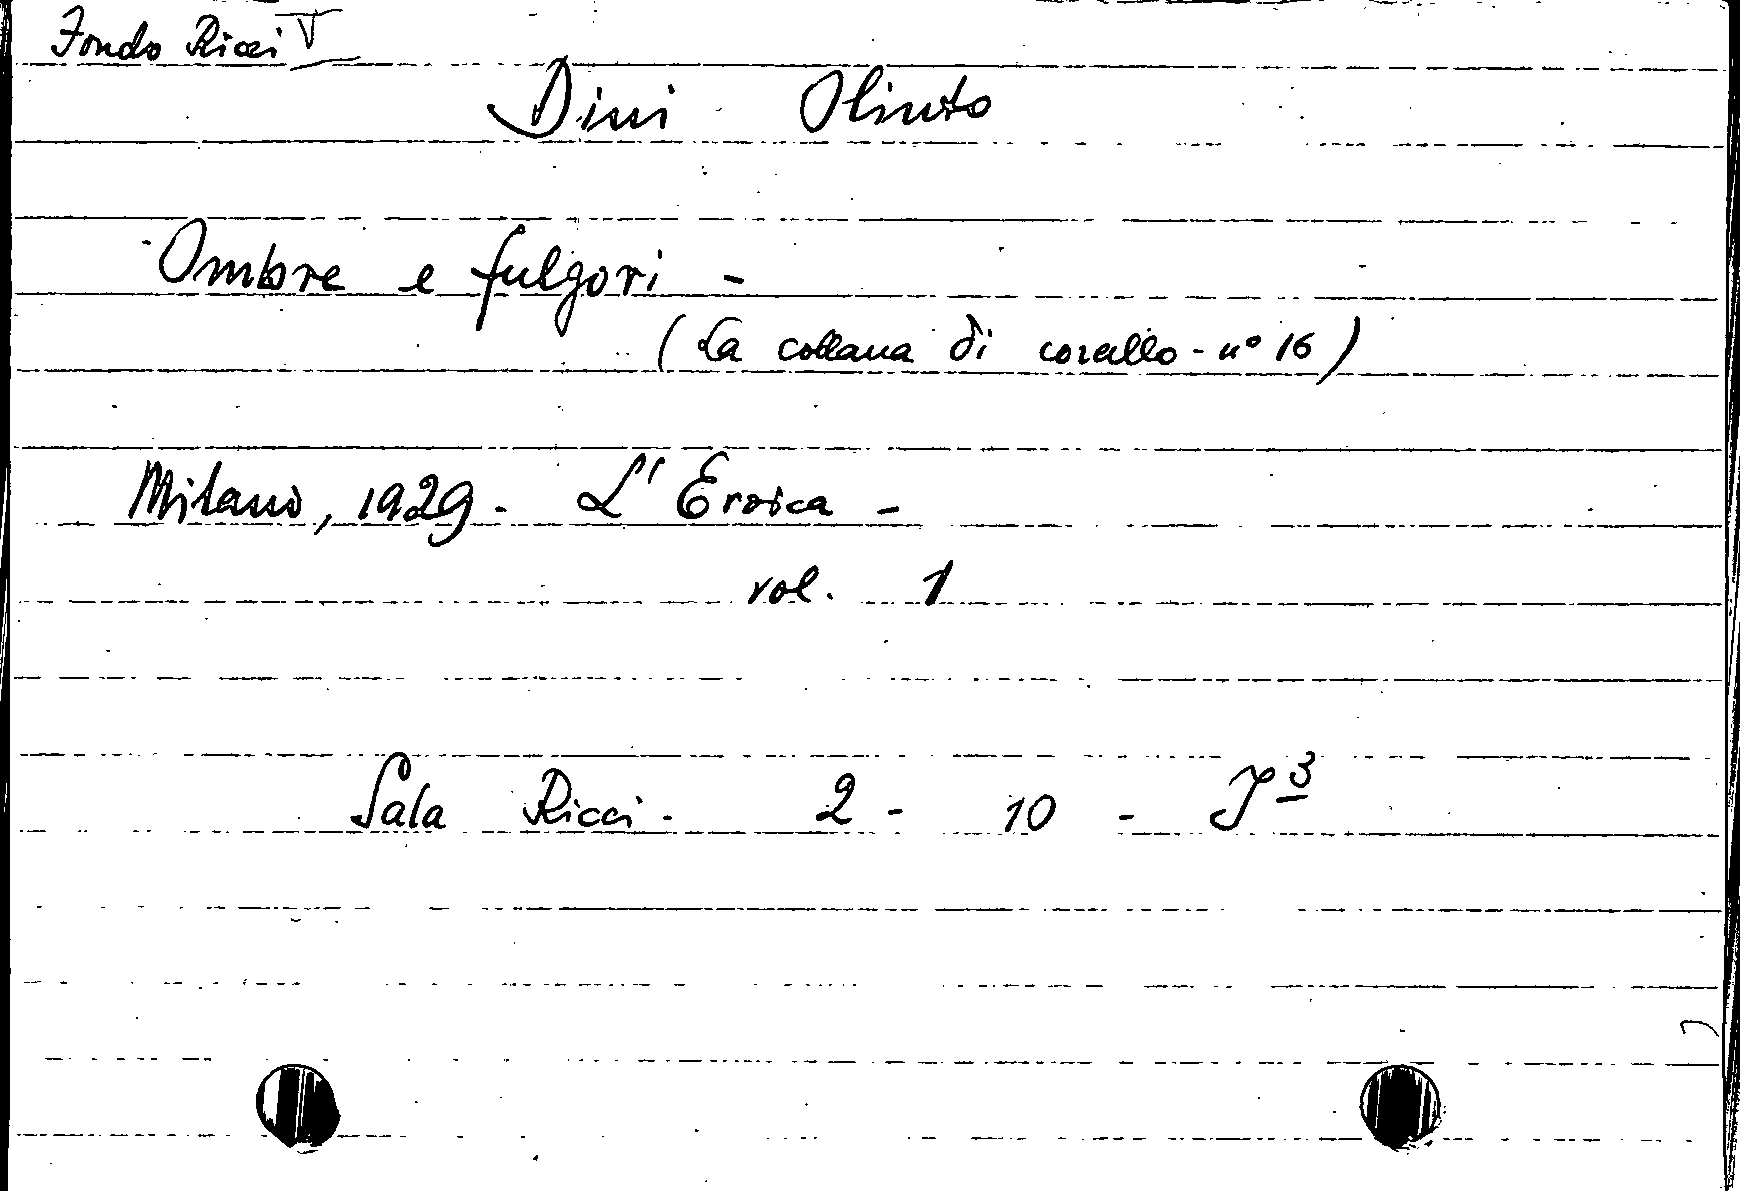 Fondo Ricci V
Dini Olinto
Ombre e fulgori -
(La collana di corallo - n° 16)
Milano, 1929 - L'Eroica -
vol. 1
Sala Ricci - 2 - 10 - J 3